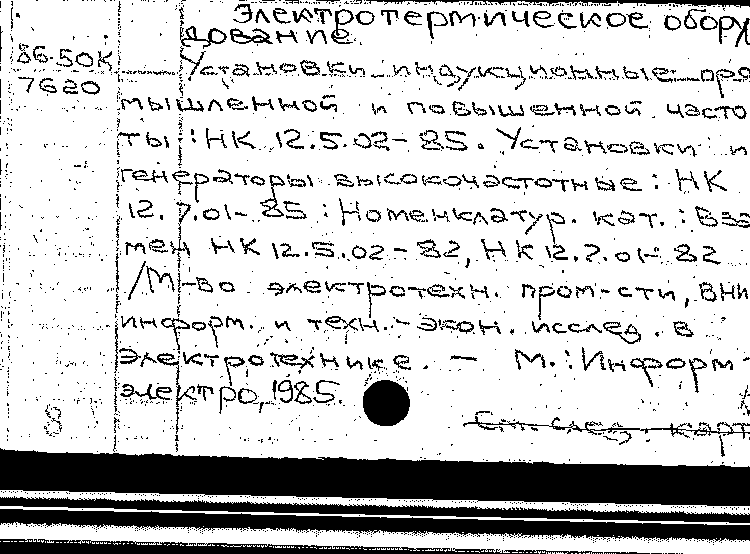 Электротермическое обору
дование
86-50К
7620
Установки индукционные про
мышленной и повышенной часто
ты : НК 12.5.02-85. Установки и
генераторы высокочастотные : НК
12.7.01-85 : Номенклатур. кат. : Вза
мен НК 12.5.02-82, НК 12.7.01-82
/М-во электротехн. пром-сти, ВНИ
информ. и техн.-экон. исслед. в
электротехнике. — М. : Информ-
электро, 1985.
8
См. след. карт